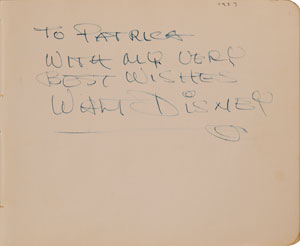 TO PATRICK
WITH MY VERY
BEST WISHES
WALT DISNEY